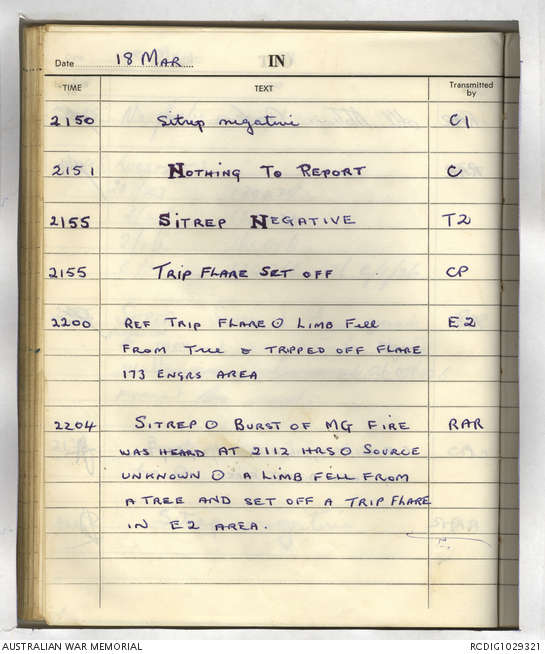 Date 18 MAR IN
TIME TEXT Transmitted by
2150 Sitrep negative C1
2151 NOTHING TO REPORT C
2155 SITREP NEGATIVE T2
2155 TRIP FLARE SET OFF CP
2200 REF TRIP FLARE ⊙ LIMB FELL E2
FROM TREE & TRIPPED OFF FLARE
173 ENGRS AREA
2204 SITREP ⊙ BURST OF MG FIRE RAR
WAS HEARD AT 2112 HRS ⊙ SOURCE
UNKNOWN ⊙ A LIMB FELL FROM
A TREE AND SET OFF A TRIP FLARE
IN E2 AREA.
AUSTRALIAN WAR MEMORIAL RCDIG1029321